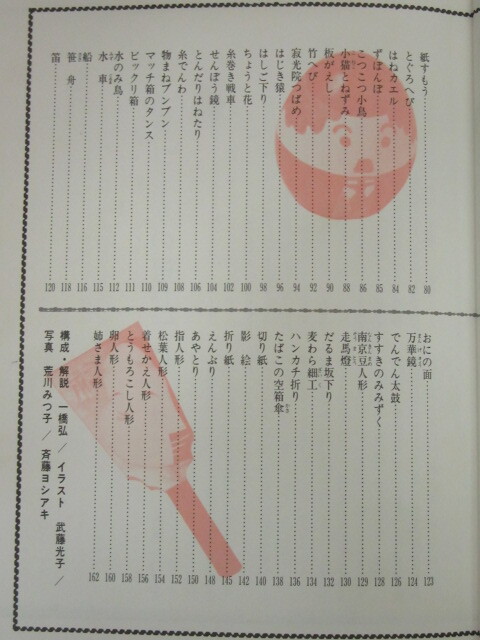 紙ずもう 80
とぐろへび 82
はねカエル 84
ずぼんぼ 85
こつこつ小鳥 86
小猫とねずみ 88
板がえし 90
竹へび 92
寂光院つばめ 94
はじき猿 96
はしご下り 98
ちょうと花 100
糸巻き戦車 102
せんぼう鏡 104
とんだりはねたり 106
糸でんわ 108
物まねブンブン 109
マッチ箱のタンス 110
ビックリ箱 111
水のみ鳥 112
水車 115
船 116
笹舟 118
笛 120
おにの面 123
万華鏡 124
でんでん太鼓 126
すすきのみみずく 128
南京豆人形 129
走馬燈 130
だるま坂下り 132
麦わら細工 134
ハンカチ折り 136
たばこの空箱傘 138
切り紙 140
影絵 142
折り紙 145
えんぶり 148
あやとり 150
指人形 152
松葉人形 154
着せかえ人形 156
とうもろこし人形 158
卵人形 160
姉さま人形 162
構成・解説 一橋弘/イラスト 武藤光子/
写真 荒川みつ子/斉藤ヨシアキ